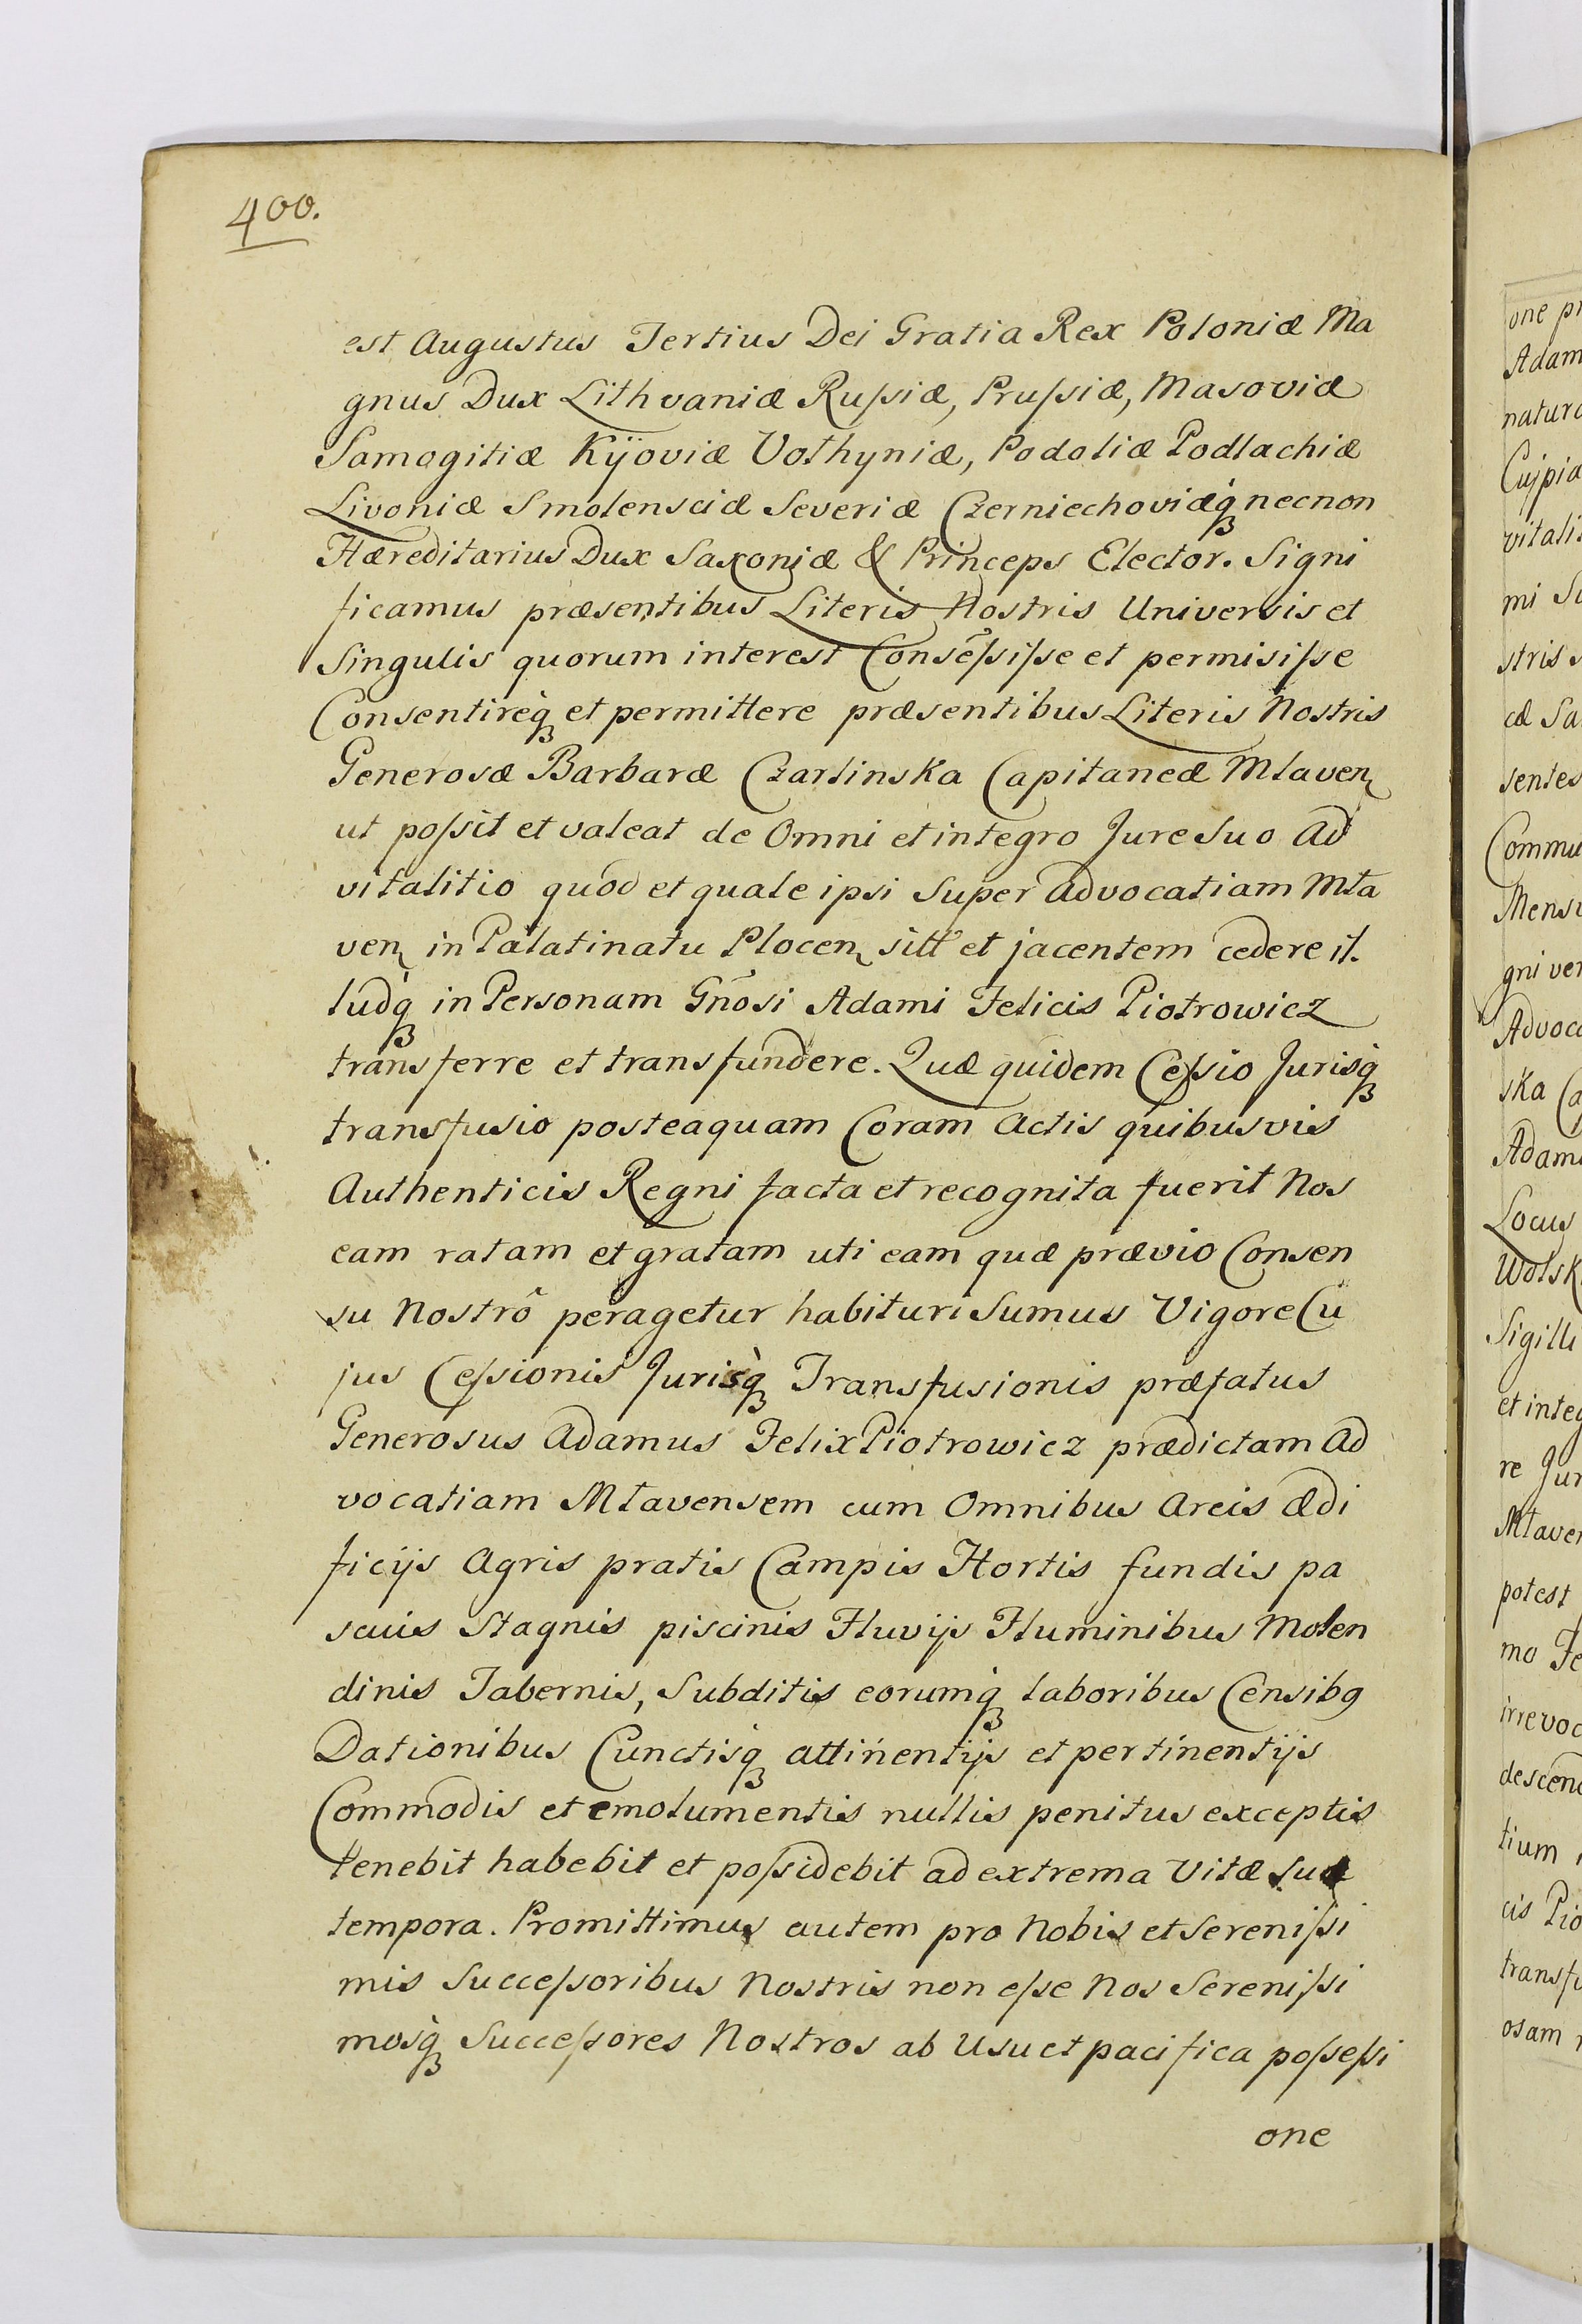 400.
est Augustus Tertius Dei Gratia Rex Poloniæ Ma
gnus Dux Lithvaniæ Rußiæ, Prußiæ, Masoviæ
Samogitiæ Kÿoviæ Volhyniæ, Podoliæ Podlachiæ
Livoniæ Smolensciæ Severiæ Czerniechoviæq̀ȝ necnon
Hæreditarius Dux Saxoniæ & Princeps Elector. Signi
ficamus præsentibus Literis Nostris Universis et
Singulis quorum interest Conse᷈ßiße et permisiße
Consentireq̀ȝ et permittere præsentibus Literis Nostris
Generosæ Barbaræ Czarlinska Capitaneæ Mlaven̨
ut poßit et valeat de Omni et integro Jure Suo Ad
vitalitio quod et quale ipsi Super Advocatiam Mla
ven̨ in Palatinatu Plocen̨ sitt et jacentem cedere il.
ludq̀ȝ in Personam Gn̄osi Adami Felicis Piotrowicz
transferre et transfundere. Quæ quidem Ceßio Jurisq̀ȝ
transfusio posteaquam Coram Actis quibusvis
Authenticis Regni facta et recognita fuerit Nos
eam ratam et gratam uti eam quæ prævio Consen
su Nostrô peragetur habituri Sumus Vigore Cu
jus Ceßionis Jurisq̀ȝ Transfusionis præfatus
Generosus Adamus Felix Piotrowicz prædictam Ad
vocatiam Mlavensem cum Omnibus Areis ædi
ficijs Agris pratis Campis Hortis fundis pa
scuis Stagnis piscinis Fluvijs Fluminibus Molen
dinis Tabernis, Subditis eorumq̀ȝ laboribus Censibꝯ
Dationibus Cunctisq̀ȝ attinentijs et pertinentijs
Commodis et emolumentis nullis penitus exceptis
tenebit habebit et poßidebit ad extrema Vitæ Suæ
tempora. Promittimus autem pro Nobis et Serenißi
mis Succeßoribus Nostris non eße Nos Serenißi
mosq̀ȝ Succeßores Nostros ab Usu et pacifica poßeßi
one
one pr
Adam
natura
Cujpia
vitali
mi Su
stris
cæ Sa
sentes
Commu
Mensi
gni ver
Advoca
ska Ca
Adami
Locus
Wolsk
Sigilli
et integ
re Jur
Mlaven
potest
mo Fe
irrevoc
descen
tium
cis Pio
transfu
osam